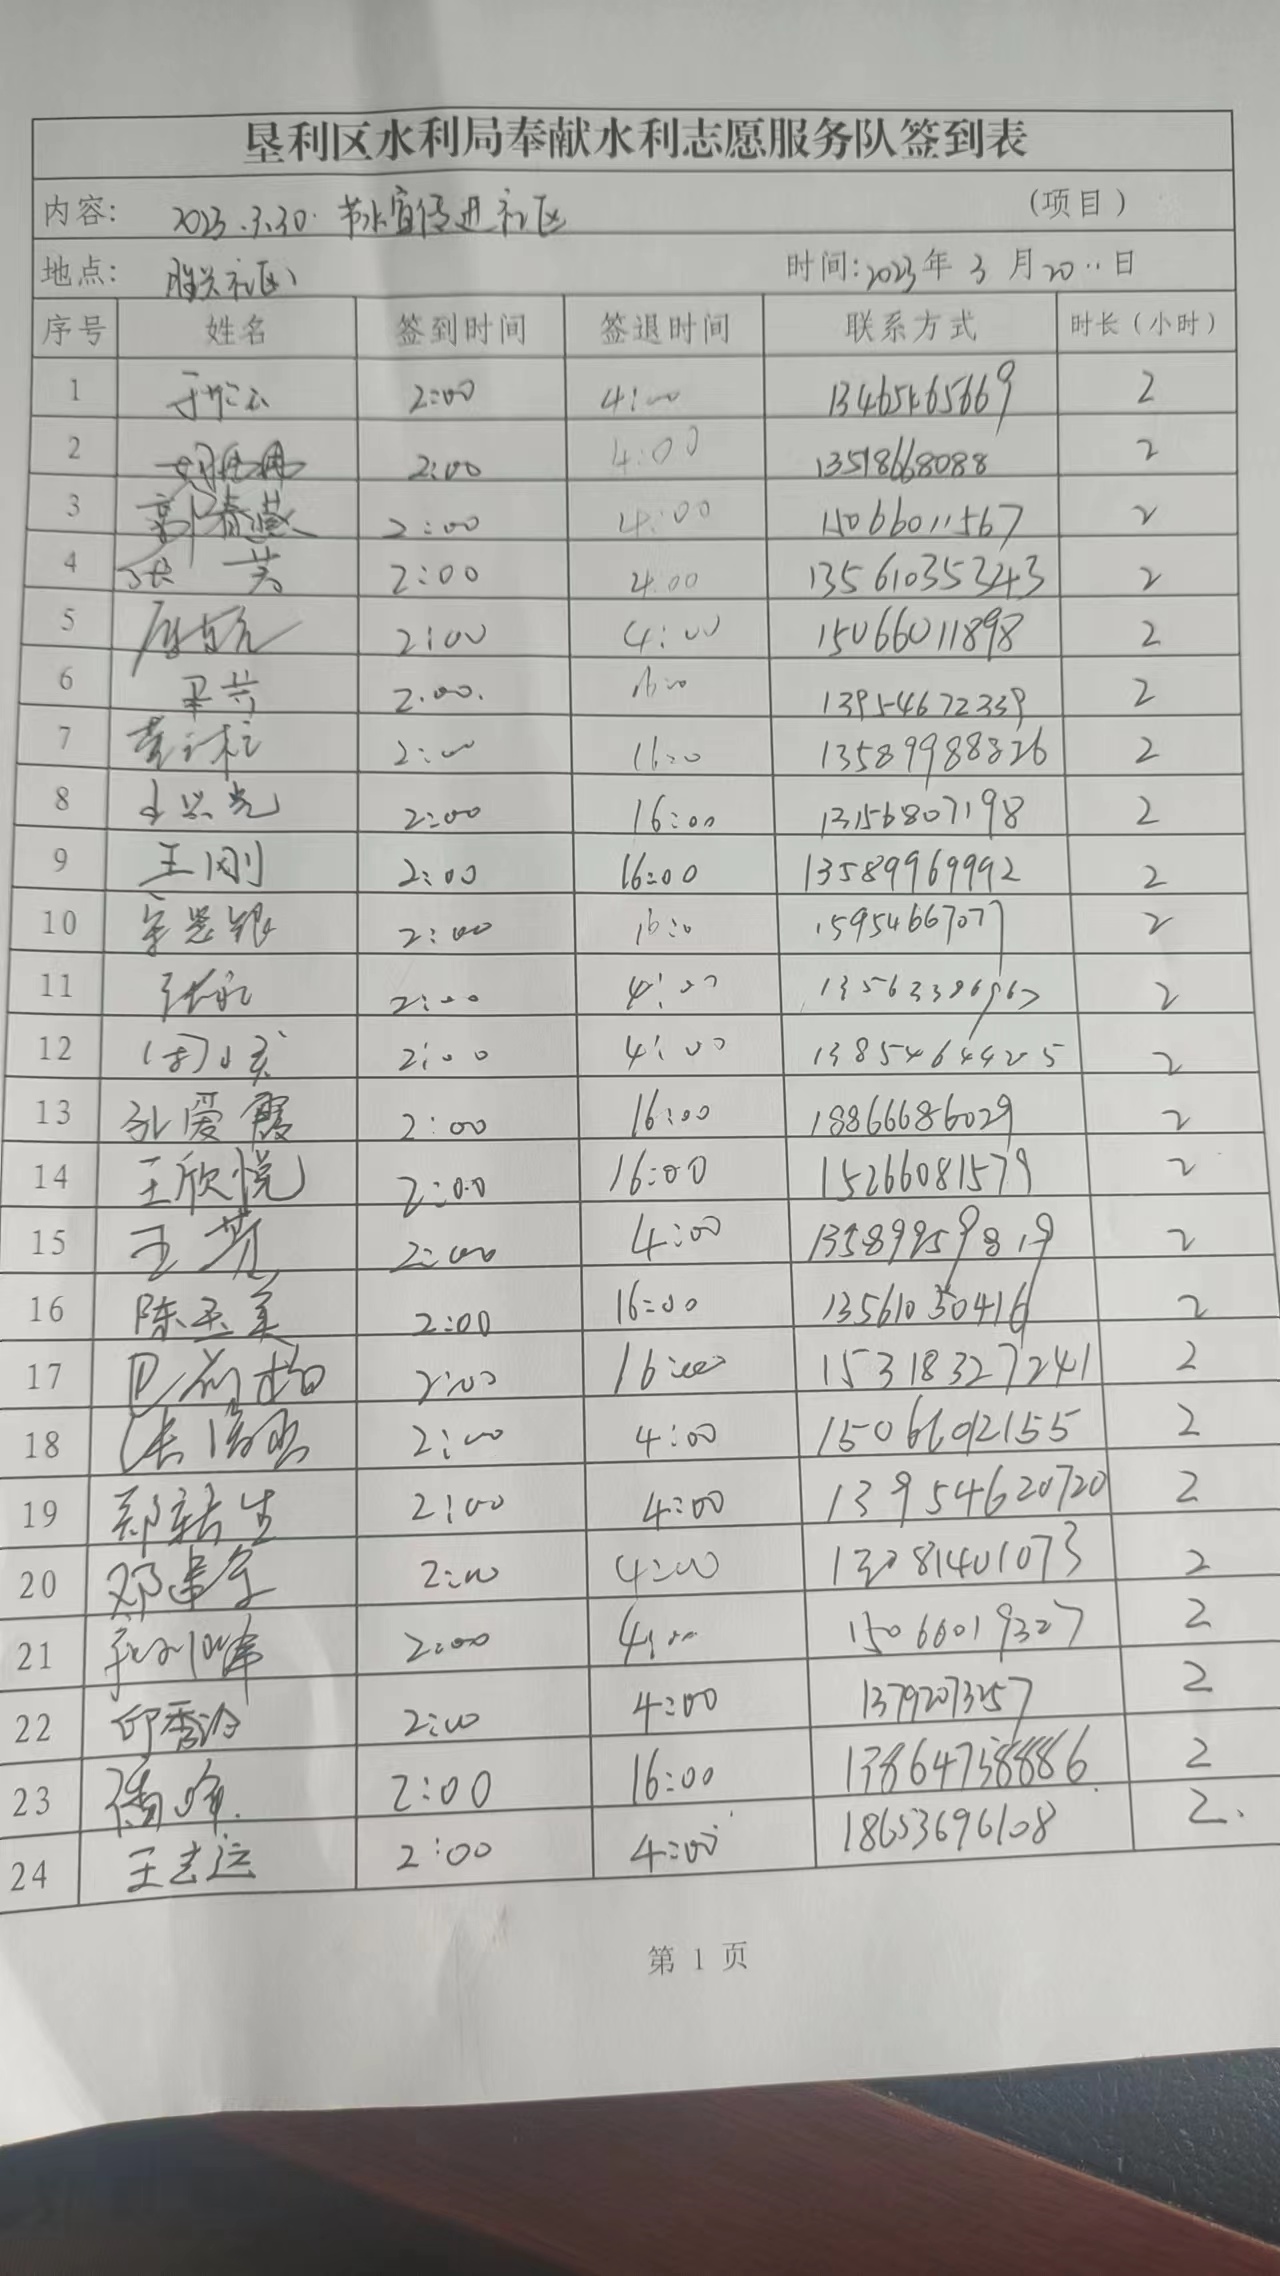 垦利区水利局奉献水利志愿服务队签到表
内容: 2023.3.30. 节水宣传进社区 (项目)
地点: 胜兴社区 时间:2023年 3 月 20 日
序号 姓名 签到时间 签退时间 联系方式 时长(小时)
1 2:00 4:00 13465465669 2
2 2:00 4:00 13518668088 2
3 郭春燕 2:00 4:00 15066011567 2
4 张 芳 2:00 4:00 13561035343 2
5 2:00 4:00 15066011898 2
6 2:00. 16:00 13954672339 2
7 2:00 16:00 13589988826 2
8 2:00 16:00 13156807198 2
9 王刚 2:00 16:00 13589969992 2
10 2:00 16:0 15954667077 2
11 2:00 4:00 2
12 2:00 4:00 13854644205 2
13 孔爱霞 2:00 16:00 18866686029 2
14 王欣悦 2:00 16:00 15266081579 2
15 王芳 2:00 4:00 13589959819 2
16 陈玉美 2:00 16:00 13561030416 2
17 2:00 16:00 15318327241 2
18 2:00 4:00 2
19 2:00 4:00 13954620720 2
20 邓建军 2:00 4:00 13081401073 2
21 2:00 4:00 15066019327 2
22 2:00 4:00 13792073257 2
23 2:00 16:00 13864758886 2
24 王志运 2:00 4:00 18653696108 2.
第 1 页